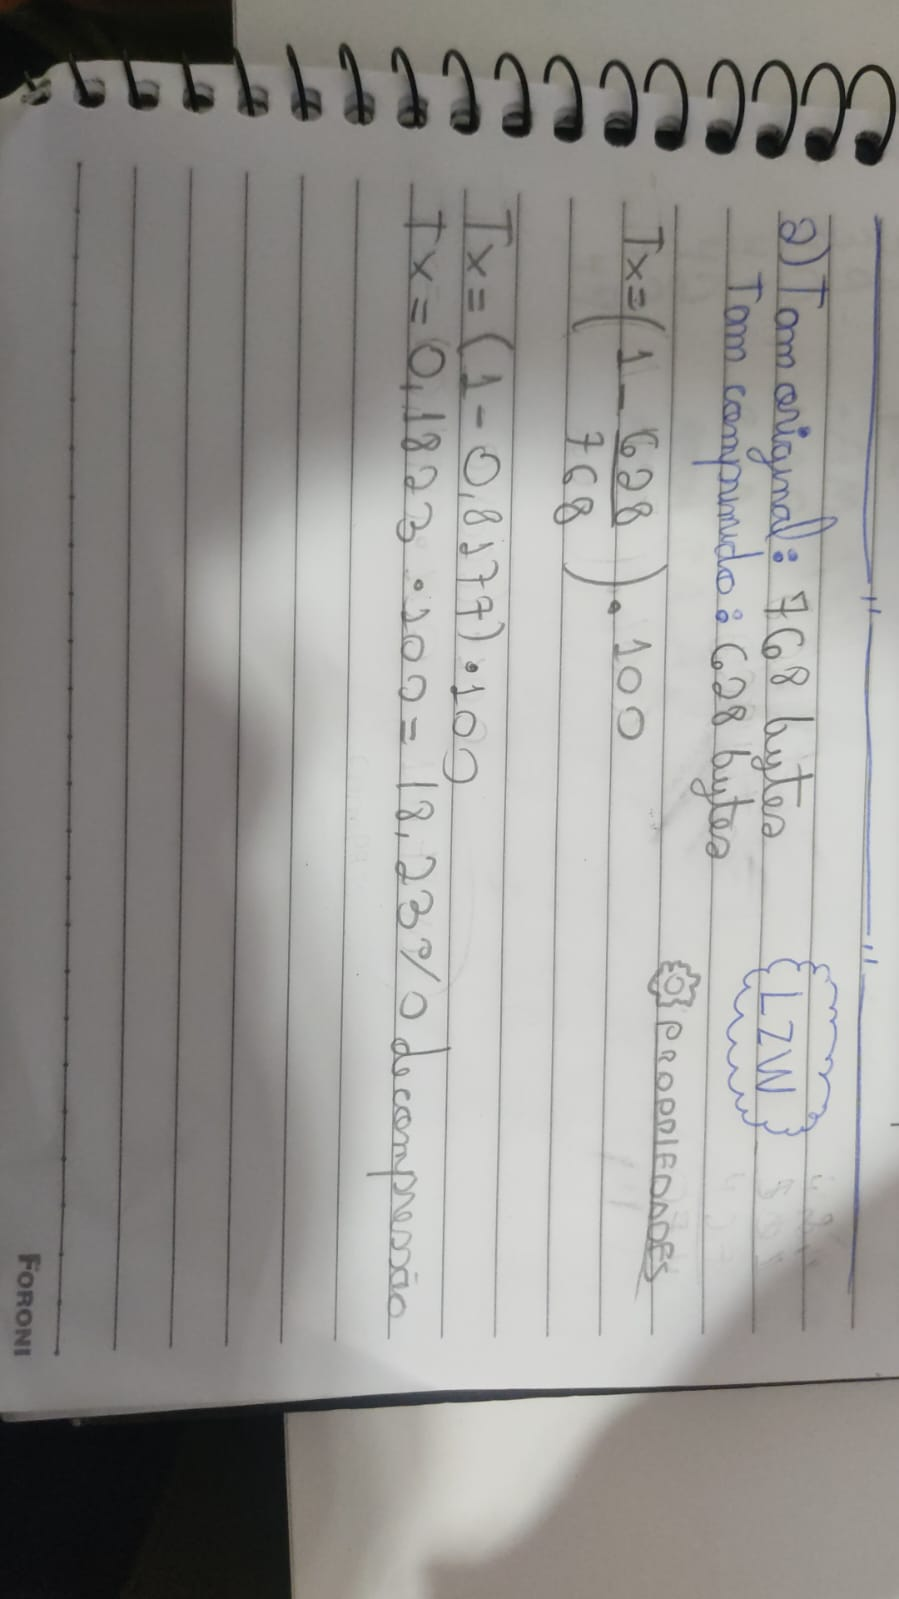 2) Tam original: 768 bytes
LZW
Tam comprimido: 628 bytes
PROPRIEDADES
Tx=(1-628/768).100
Tx=(1-0,8177).100
Tx=0,1823.100=18,23% de compressão
FORONI